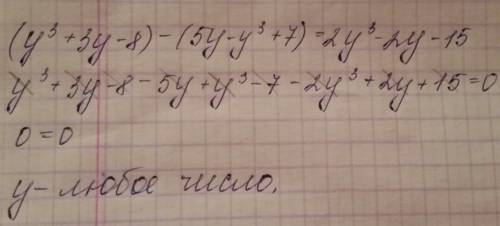 (y³+3y-8)-(5y-y³+7)=2y³-2y-15
y³+3y-8-5y+y³-7-2y³+2y+15=0
0=0
y-любое число.